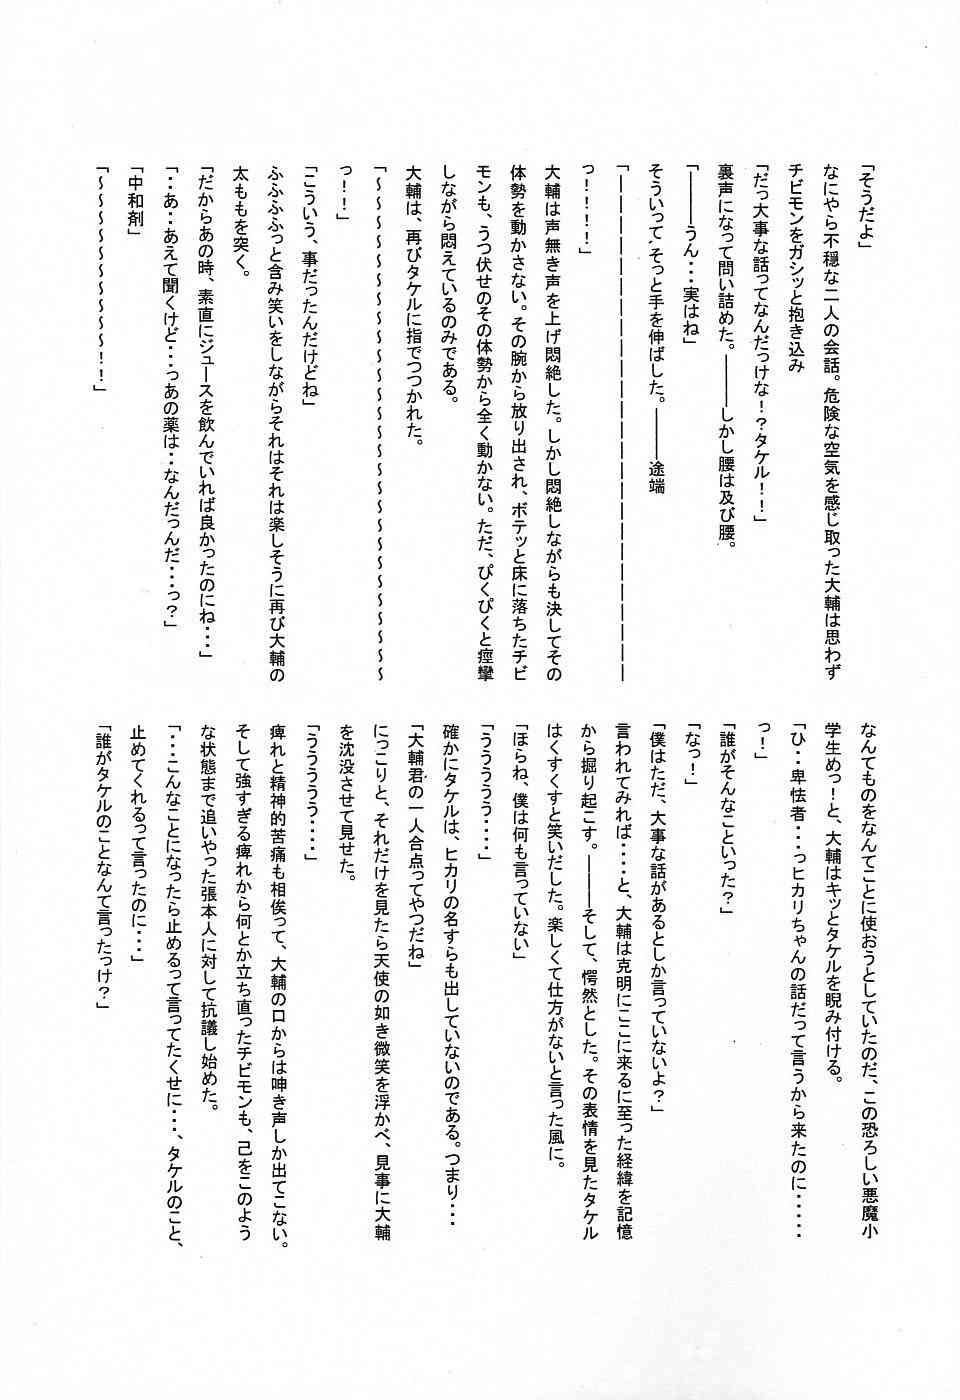 「そうだよ」
なにやら不穏な二人の会話。危険な空気を感じ取った大輔は思わず
チビモンをガシッと抱き込み
「だっ大事な話ってなんだっけな！？タケル！！」
裏声になって問い詰めた。―――しかし腰は及び腰。
「―――うん・・・実はね」
そういって、そっと手を伸ばした。―――途端
「――――――――――――――――――――――
っ！！！！」
大輔は声無き声を上げ悶絶した。しかし悶絶しながらも決してその
体勢を動かさない。その腕から放り出され、ボテッと床に落ちたチビ
モンも、うつ伏せのその体勢から全く動かない。ただ、ぴくぴくと痙攣
しながら悶えているのみである。
大輔は、再びタケルに指でつつかれた。
「～～～～～～～～～～～～～～～～～～～～～～
っ！！」
「こういう、事だったんだけどね」
ふふふふっと含み笑いをしながらそれはそれは楽しそうに再び大輔の
太ももを突く。
「だからあの時、素直にジュースを飲んでいれば良かったのにね・・・」
「・・あ・・あえて聞くけど・・・っあの薬は・・なんだっんだ・・・っ？」
「中和剤」
「～～～～～～～～～！！」
なんてものをなんてことに使おうとしていたのだ、この恐ろしい悪魔小
学生めっ！と、大輔はキッとタケルを睨み付ける。
「ひ・・卑怯者・・・っヒカリちゃんの話だって言うから来たのに・・・・・
っ！」
「誰がそんなこといった？」
「なっ！」
「僕はただ、大事な話があるとしか言っていないよ？」
言われてみれば・・・・と、大輔は克明にここに来るに至った経緯を記憶
から掘り起こす。―――そして、愕然とした。その表情を見たタケル
はくすくすと笑いだした。楽しくて仕方がないと言った風に。
「ほらね、僕は何も言っていない」
「うううう・・・・」
確かにタケルは、ヒカリの名すらも出していないのである。つまり・・・
「大輔君の一人合点ってやつだね」
にっこりと、それだけを見たら天使の如き微笑を浮かべ、見事に大輔
を沈没させて見せた。
「ううううう・・・・」
痺れと精神的苦痛も相俟って、大輔の口からは呻き声しか出てこない。
そして強すぎる痺れから何とか立ち直ったチビモンも、己をこのよう
な状態まで追いやった張本人に対して抗議し始めた。
「・・・こんなことになったら止めるって言ってたくせに・・・、タケルのこと、
止めてくれるって言ったのに・・・」
「誰がタケルのことなんて言ったっけ？」